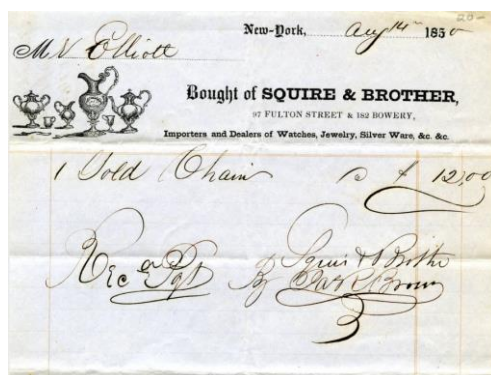 20-
New-York, Aug 14th 1850
M N Elliott
Bought of SQUIRE & BROTHER,
97 FULTON STREET & 182 BOWERY,
Importers and Dealers of Watches, Jewelry, Silver Ware, &c. &c.
1 Gold Chain $ 12,00
Rec'd Pyt Squire & Brother
By Brown